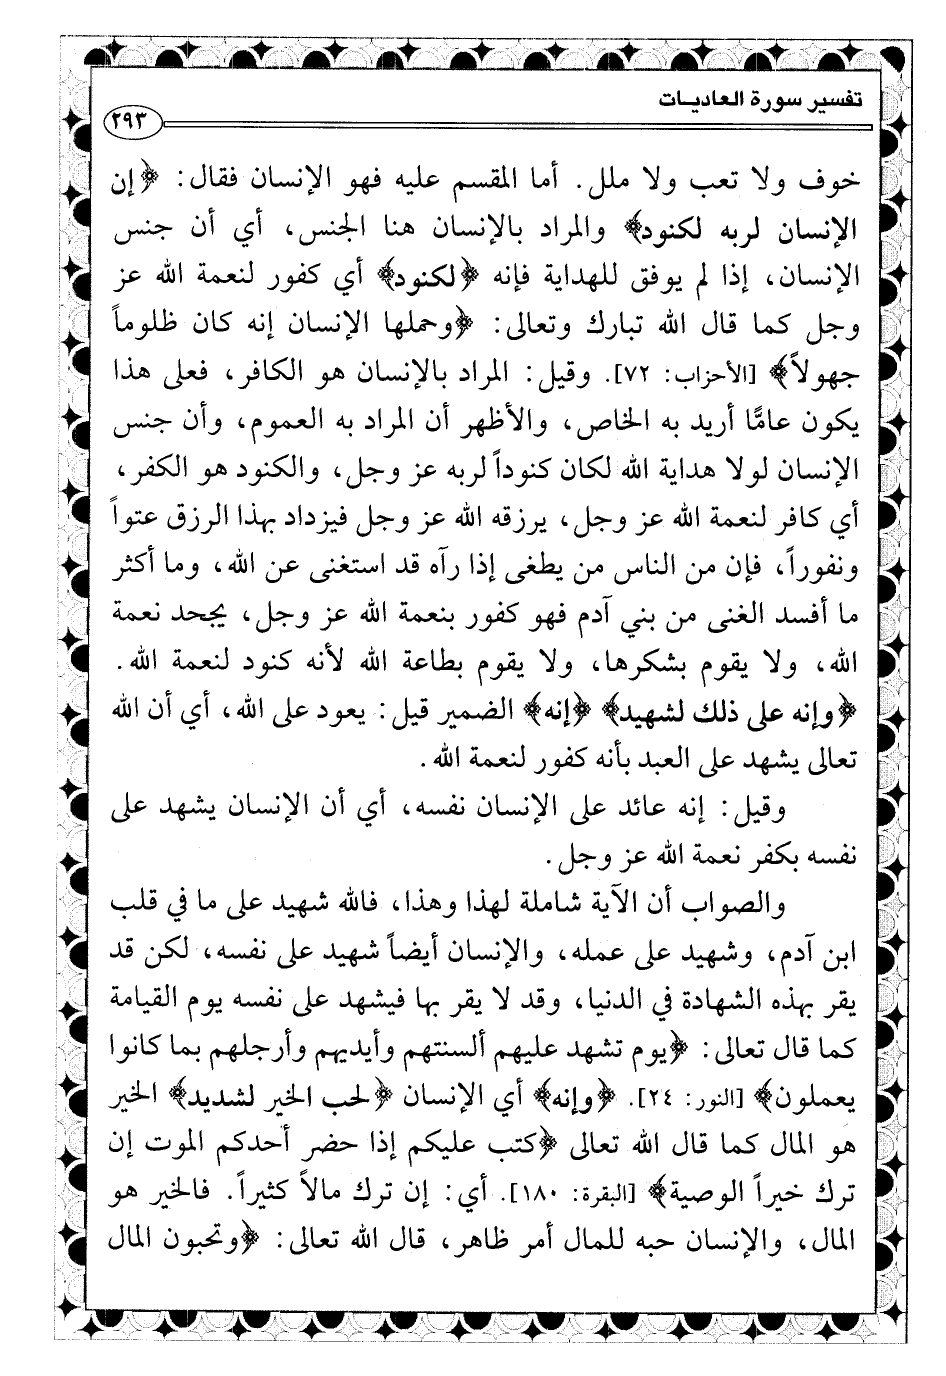 تفسير سورة العاديات
٢٩٣
خوف ولا تعب ولا ملل. أما المقسم عليه فهو الإنسان فقال: ﴿إن
الإنسان لربه لكنود﴾ والمراد بالإنسان هنا الجنس، أي أن جنس
الإنسان، إذا لم يوفق للهداية فإنه ﴿لكنود﴾ أي كفور لنعمة الله عز
وجل كما قال الله تبارك وتعالى: ﴿وحملها الإنسان إنه كان ظلوماً
جهولاً﴾ [الأحزاب: ٧٢]. وقيل: المراد بالإنسان هو الكافر، فعلى هذا
يكون عامًّا أريد به الخاص، والأظهر أن المراد به العموم، وأن جنس
الإنسان لولا هداية الله لكان كنوداً لربه عز وجل، والكنود هو الكفر،
أي كافر لنعمة الله عز وجل، يرزقه الله عز وجل فيزداد بهذا الرزق عتواً
ونفوراً، فإن من الناس من يطغى إذا رآه قد استغنى عن الله، وما أكثر
ما أفسد الغنى من بني آدم فهو كفور بنعمة الله عز وجل، يجحد نعمة
الله، ولا يقوم بشكرها، ولا يقوم بطاعة الله لأنه كنود لنعمة الله.
﴿وإنه على ذلك لشهيد﴾ ﴿إنه﴾ الضمير قيل: يعود على الله، أي أن الله
تعالى يشهد على العبد بأنه كفور لنعمة الله.
وقيل: إنه عائد على الإنسان نفسه، أي أن الإنسان يشهد على
نفسه بكفر نعمة الله عز وجل.
والصواب أن الآية شاملة لهذا وهذا، فالله شهيد على ما في قلب
ابن آدم، وشهيد على عمله، والإنسان أيضاً شهيد على نفسه، لكن قد
يقر بهذه الشهادة في الدنيا، وقد لا يقر بها فيشهد على نفسه يوم القيامة
كما قال تعالى: ﴿يوم تشهد عليهم ألسنتهم وأيديهم وأرجلهم بما كانوا
يعملون﴾ [النور: ٢٤]. ﴿وإنه﴾ أي الإنسان ﴿لحب الخير لشديد﴾ الخير
هو المال كما قال الله تعالى ﴿كتب عليكم إذا حضر أحدكم الموت إن
ترك خيراً الوصية﴾ [البقرة: ١٨٠]. أي: إن ترك مالاً كثيراً. فالخير هو
المال، والإنسان حبه للمال أمر ظاهر، قال الله تعالى: ﴿وتحبون المال